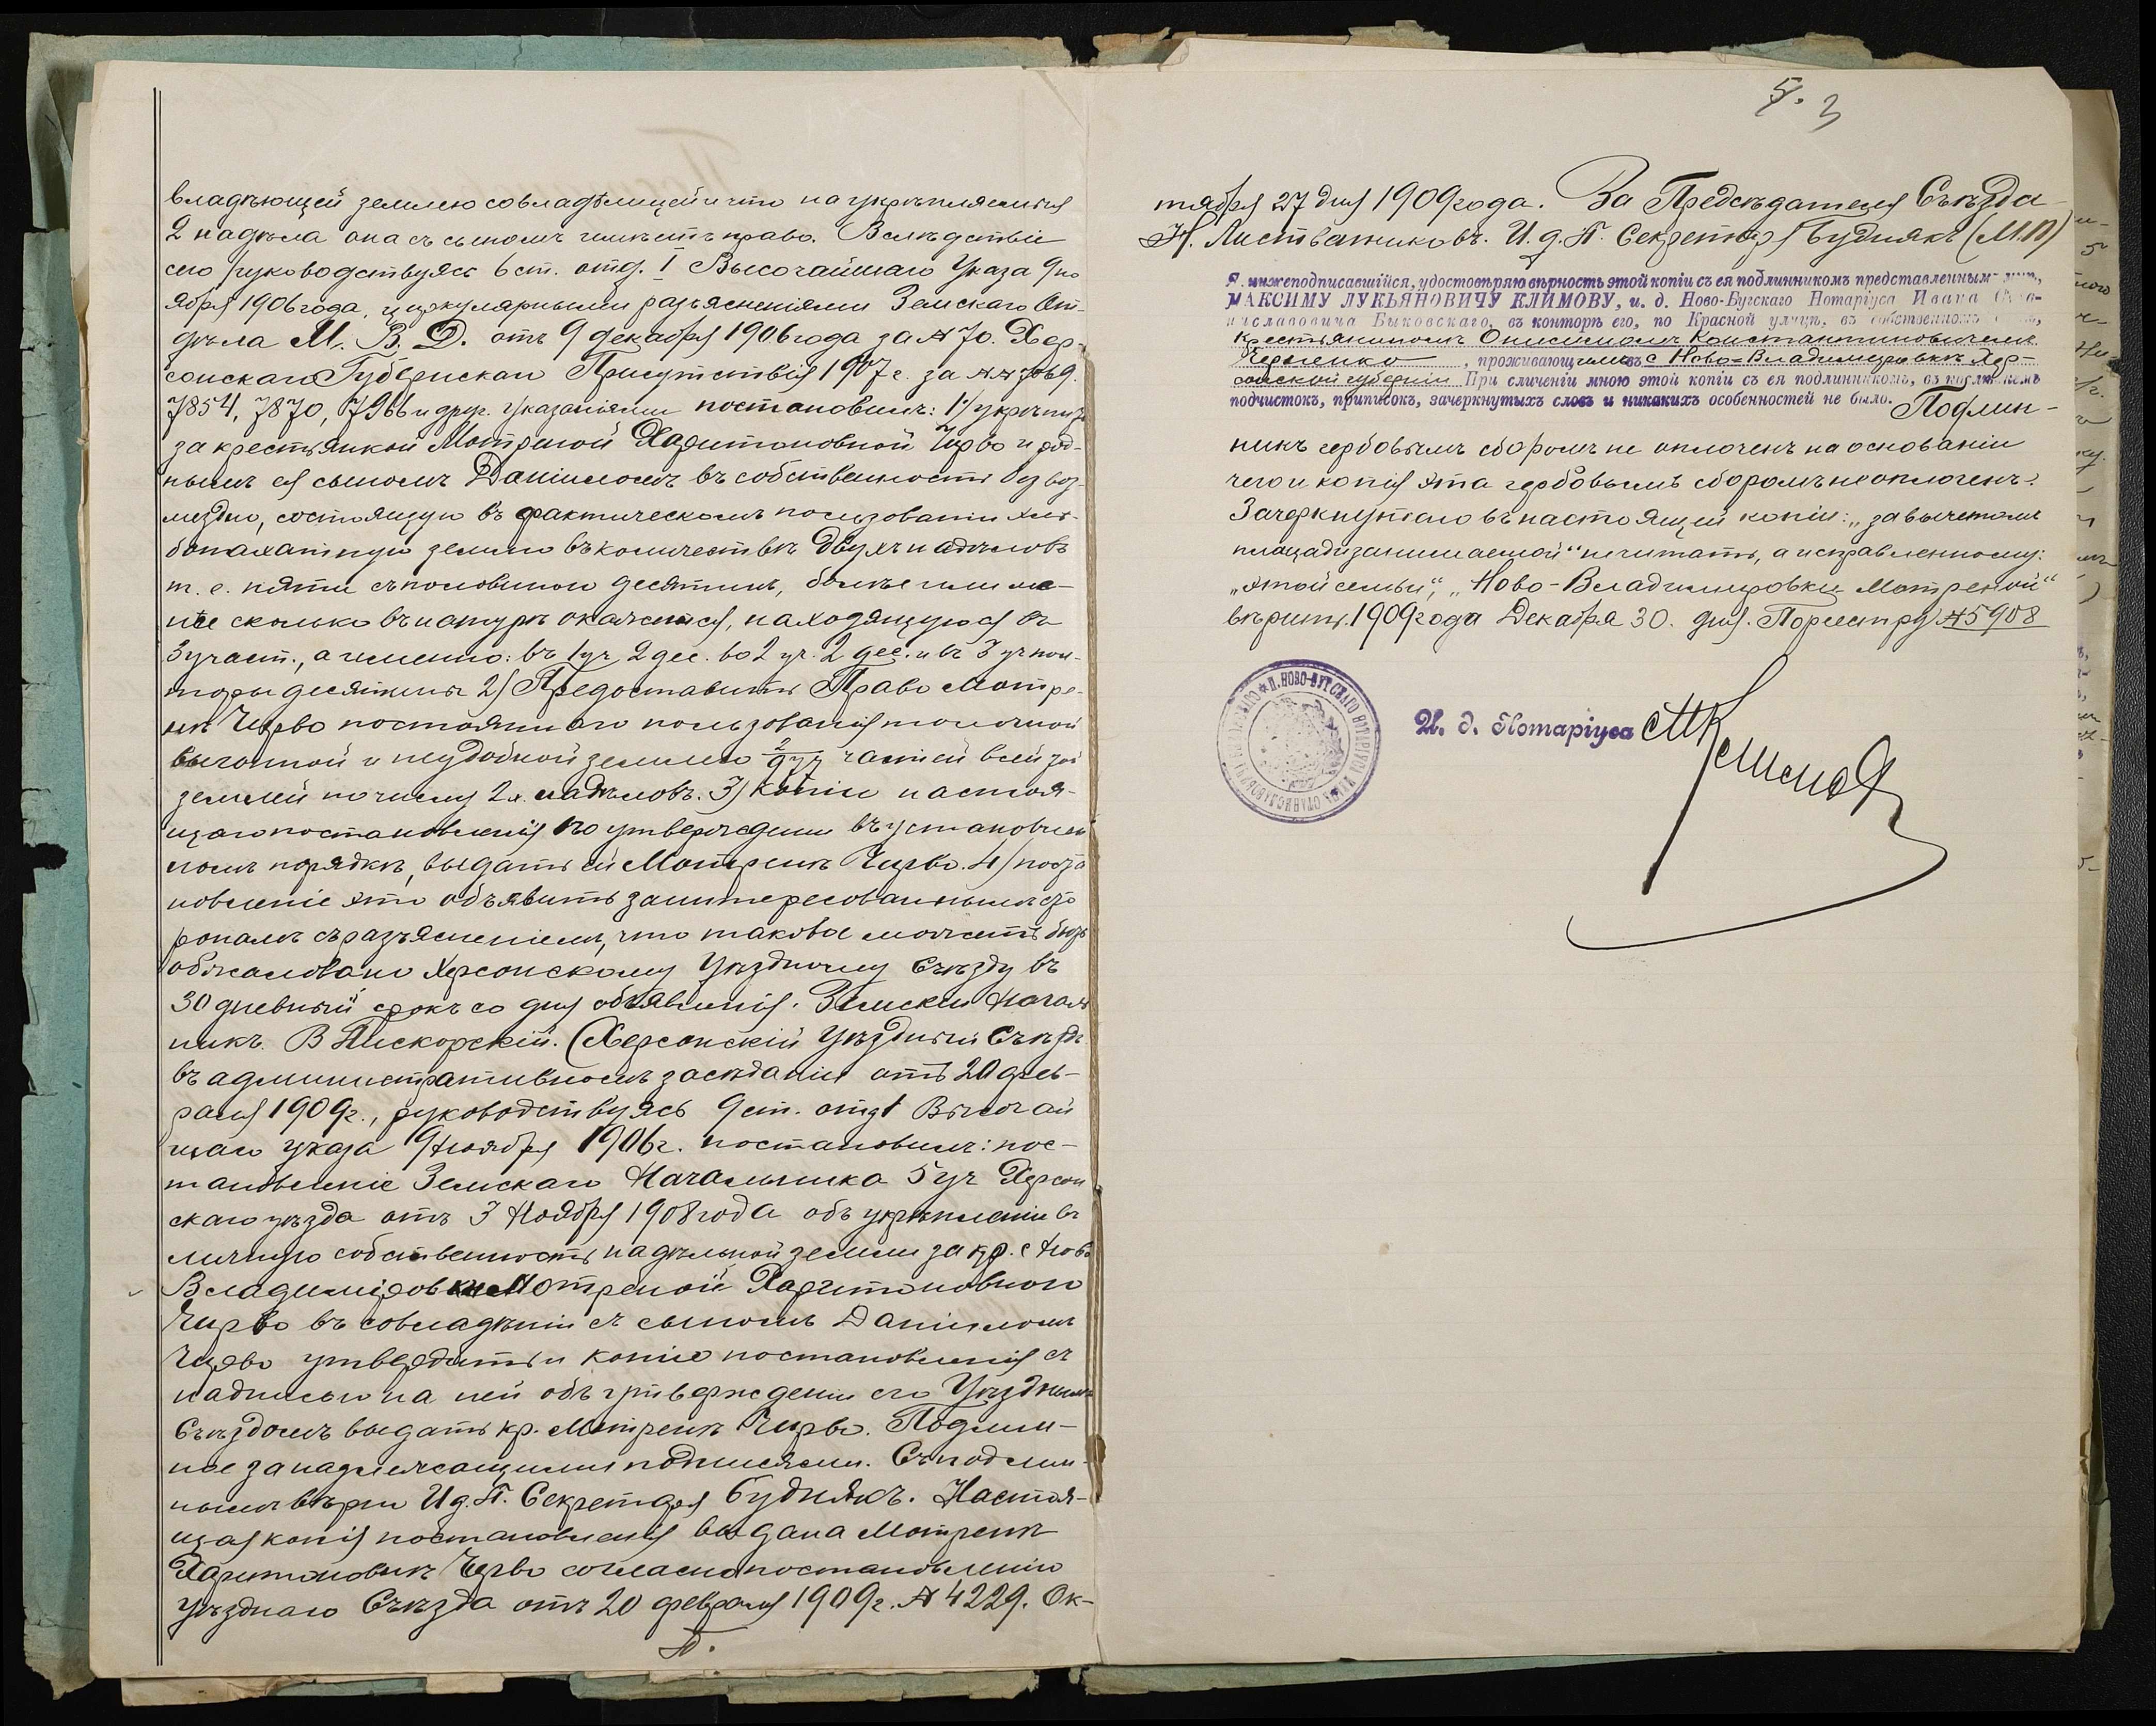 владѣющей землею совладѣлицей и что на укрѣпляемыя
2 надѣла она съ сыномъ имѣетъ право. Вслѣдствіе
сего руководствуясь 6 ст. отд. I Высочайшаго Указа 9 но
ября 1906 года, циркулярными разъясненіями Земскаго От-
дѣла М. В. Д. отъ 9 декабря 1906 года за № 70. Хер-
сонскаго Губернскаго Присутствія 1907 г. за №№
7854, 7870, 7966 и друг. указаніями постановилъ: 1/ укрѣпить
за крестьянкой Мотреной Харитоновной Чирво и род-
нымъ ея сыномъ Даніиломъ въ собственность безвоз-
мездно, состоящую въ фактическомъ пользованіи хлѣ-
бопахатную землю въ количествѣ двухъ надѣловъ
т. е. пяти съ половиной десятинъ, болѣе или ме-
нѣе сколько въ натурѣ окажется, находящуюся въ
3 участ., а именно: въ 1 уч 2 дес. во 2 уч. 2 дес. и въ 3 уч пол-
торы десятины 2/ Предоставить Право Мотре-
нѣ Чирво постояннаго пользованія толочной
выгонной и неудобной землею частей всей
землей по числу 2х надѣловъ. 3) Копію настоя-
щаго постановленія по утвержденіи въ установлен
номъ порядкѣ, выдать ей Мотренѣ Чирво. 4) поста
новленіе это объявить заинтересованнымъ сто
ронамъ съ разъясненіемъ, что таковое можетъ быть
обжаловано Херсонскому Уѣздному Съѣзду въ
30 дневный срокъ со дня объявленія. Земскій Началь
никъ В Пискорскій. (Херсонскій Уѣздный Съѣздъ
въ административномъ засѣданіи отъ 20 фев-
раля 1909 г., руководствуясь 9 ст. отд 1 Высочай
шаго указа 9 Ноября 1906 г. постановилъ: пос-
тановленіе Земскаго Начальника 5 уч Херсон
скаго уѣзда отъ 3 Ноября 1908 года объ укрѣпленіи въ
личную собственность надѣльной земли за кр. с Ново
Владиміровки Мотреной Харитоновною
Чирво въ совладѣніи съ сыномъ Даніиломъ
Чирво утвердить и копію постановленія съ
надписью на ней объ утвержденіи его Уѣзднымъ
Съѣздомъ выдать кр. Мотренѣ Чирво. Подлин-
ное за надлежащими подписями. Съ подлин-
нымъ вѣрно И д. П. Секретаря Буднякъ. Настоя-
щая копія постановленія выдана Мотренѣ
Харитоновнѣ Чирво согласно постановленію
уѣзднаго Съѣзда отъ 20 февраля 1909 г. № 4229. Ок-
тября 27 дня 1909 года. За Предсѣдателя Съѣзда
Н. Листватниковъ. И. д. П. Секретаря Буднякъ (М.П)
Я, нижеподписавшійся, удостовѣряю вѣрность этой копіи съ ея подлинникомъ представленным мнѣ,
МАКСИМУ ЛУКЬЯНОВИЧУ КЛИМОВУ, и. д. Ново-Бугскаго Нотаріуса Ивана Ста-
ниславовича Быковскаго, въ конторѣ его, по Красной улицѣ, въ собственномъ
крестьяниномъ Онисимомъ Константиновичемъ
, проживающимъ въ с Ново-Владиміровкѣ Хер-
сонской губерніи При сличеніи мною этой копіи съ ея подлинникомъ, въ послѣднемъ
подчистокъ, приписокъ, зачеркнутыхъ словъ и никакихъ особенностей не было. Подлин-
никъ гербовымъ сборомъ не оплоченъ на основаніи
чего и копія эта гербовымъ сборомъ не оплочена.
Зачеркнутаго въ настоящей копіи: „за вычетомъ
площади занимаемой" не читать, а исправленному:
„этой семьи", „Ново-Владиміровки Мотреной"
вѣрить. 1909 года Декабря 30. дня. По реестру № 5908
И. д. Нотаріуса МКлимовъ